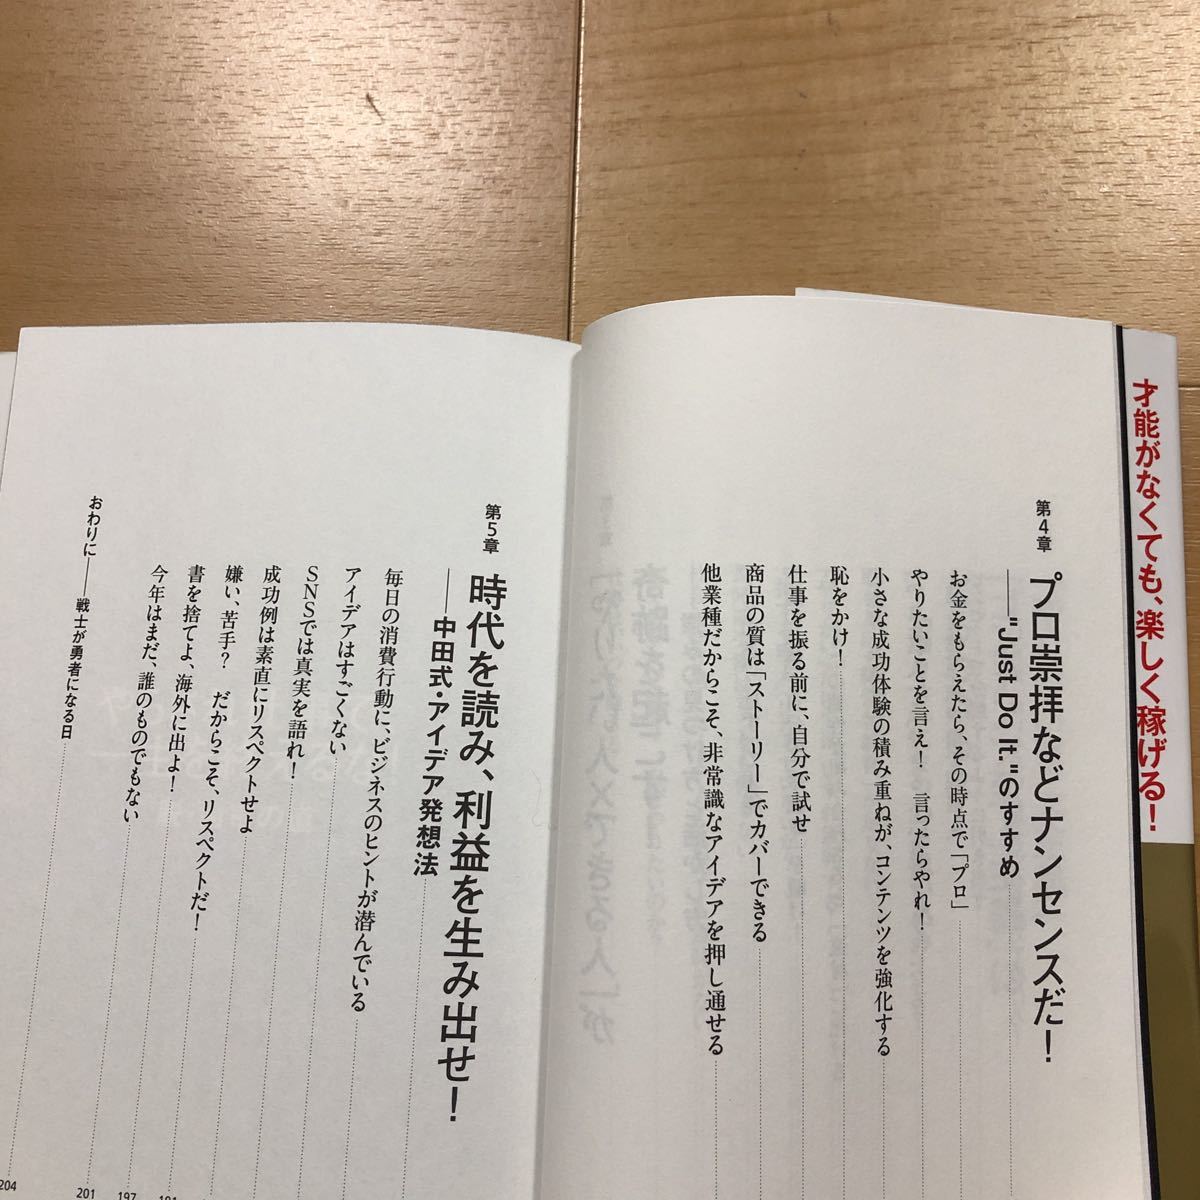 才能がなくても、楽しく稼げる!
第4章
プロ崇拝などナンセンスだ!
——"Just Do It."のすすめ
お金をもらえたら、その時点で「プロ」
やりたいことを言え! 言ったらやれ!
小さな成功体験の積み重ねが、コンテンツを強化する
恥をかけ!
仕事を振る前に、自分で試せ
商品の質は「ストーリー」でカバーできる
他業種だからこそ、非常識なアイデアを押し通せる
第5章
時代を読み、利益を生み出せ!
——中田式・アイデア発想法
毎日の消費行動に、ビジネスのヒントが潜んでいる
アイデアはすごくない
SNSでは真実を語れ!
成功例は素直にリスペクトせよ
嫌い、苦手? だからこそ、リスペクトだ!
書を捨てよ、海外に出よ!
今年はまだ、誰のものでもない
おわりに——戦士が勇者になる日
204
201
197